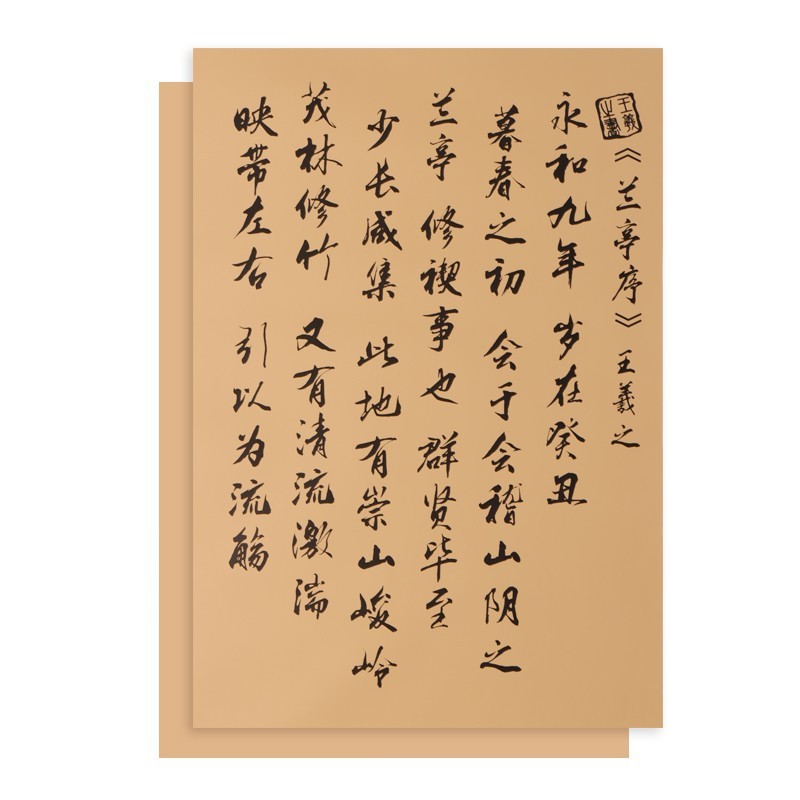 王羲之書
《兰亭序》王羲之
永和九年 岁在癸丑
暮春之初 会于会稽山阴之
兰亭 修禊事也 群贤毕至
少长咸集 此地有崇山峻岭
茂林修竹 又有清流激湍
映带左右 引以为流觞